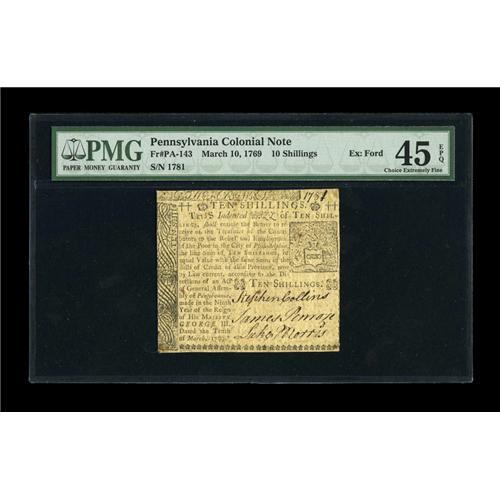 PMG
PAPER MONEY GUARANTY
Pennsylvania Colonial Note
Fr#PA-143 March 10, 1769 10 Shillings
S/N 1781
Ex: Ford
45 EPQ
Choice Extremely Fine
1781
TEN SHILLINGS.
THIS Indented BILL of TEN SHIL-
LINGS, shall entitle the Bearer to re-
ceive at the Treasury of the Contri-
butors to the Relief and Employment
of the Poor in the City of Philadelphia,
the like Sum of TEN SHILLINGS, in
equal Value with the same Sum of the
Bills of Credit of this Province, now
by Law current, according to the Di-
rections of an Act
of General Assem-
bly of Pennsylvania,
made in the Ninth
Year of the Reign
of His MAJESTY
GEORGE III.
Dated the Tenth
of March, 1769.
TEN SHILLINGS.
Stephen Collins
James Penrose
Morris